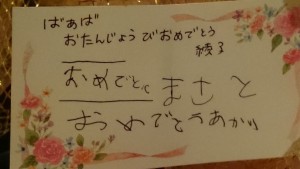 ばぁば
おたんじょうびおめでとう
綾子
おめでとう
まさと
おめでとうあかり